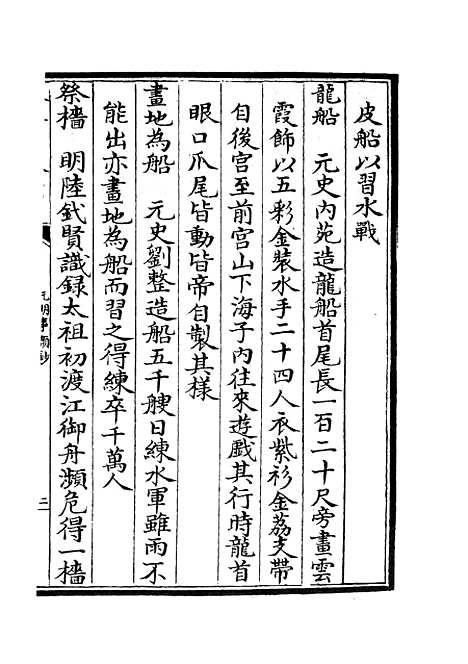 皮船以習水戰
龍船　元史内苑造龍船首尾長一百二十尺旁畫雲
霞飾以五彩金裝水手二十四人衣紫衫金荔支帶
自後宫至前宫山下海子内往來遊戲其行時龍首
眼口爪尾皆動皆帝自製其樣
畫地為船　元史劉整造船五千艘日練水軍雖雨不
能出亦畫地為船而習之得練卒千萬人
祭檣　明陸釴賢識録太祖初渡江御舟瀕危得一檣
元明事類鈔